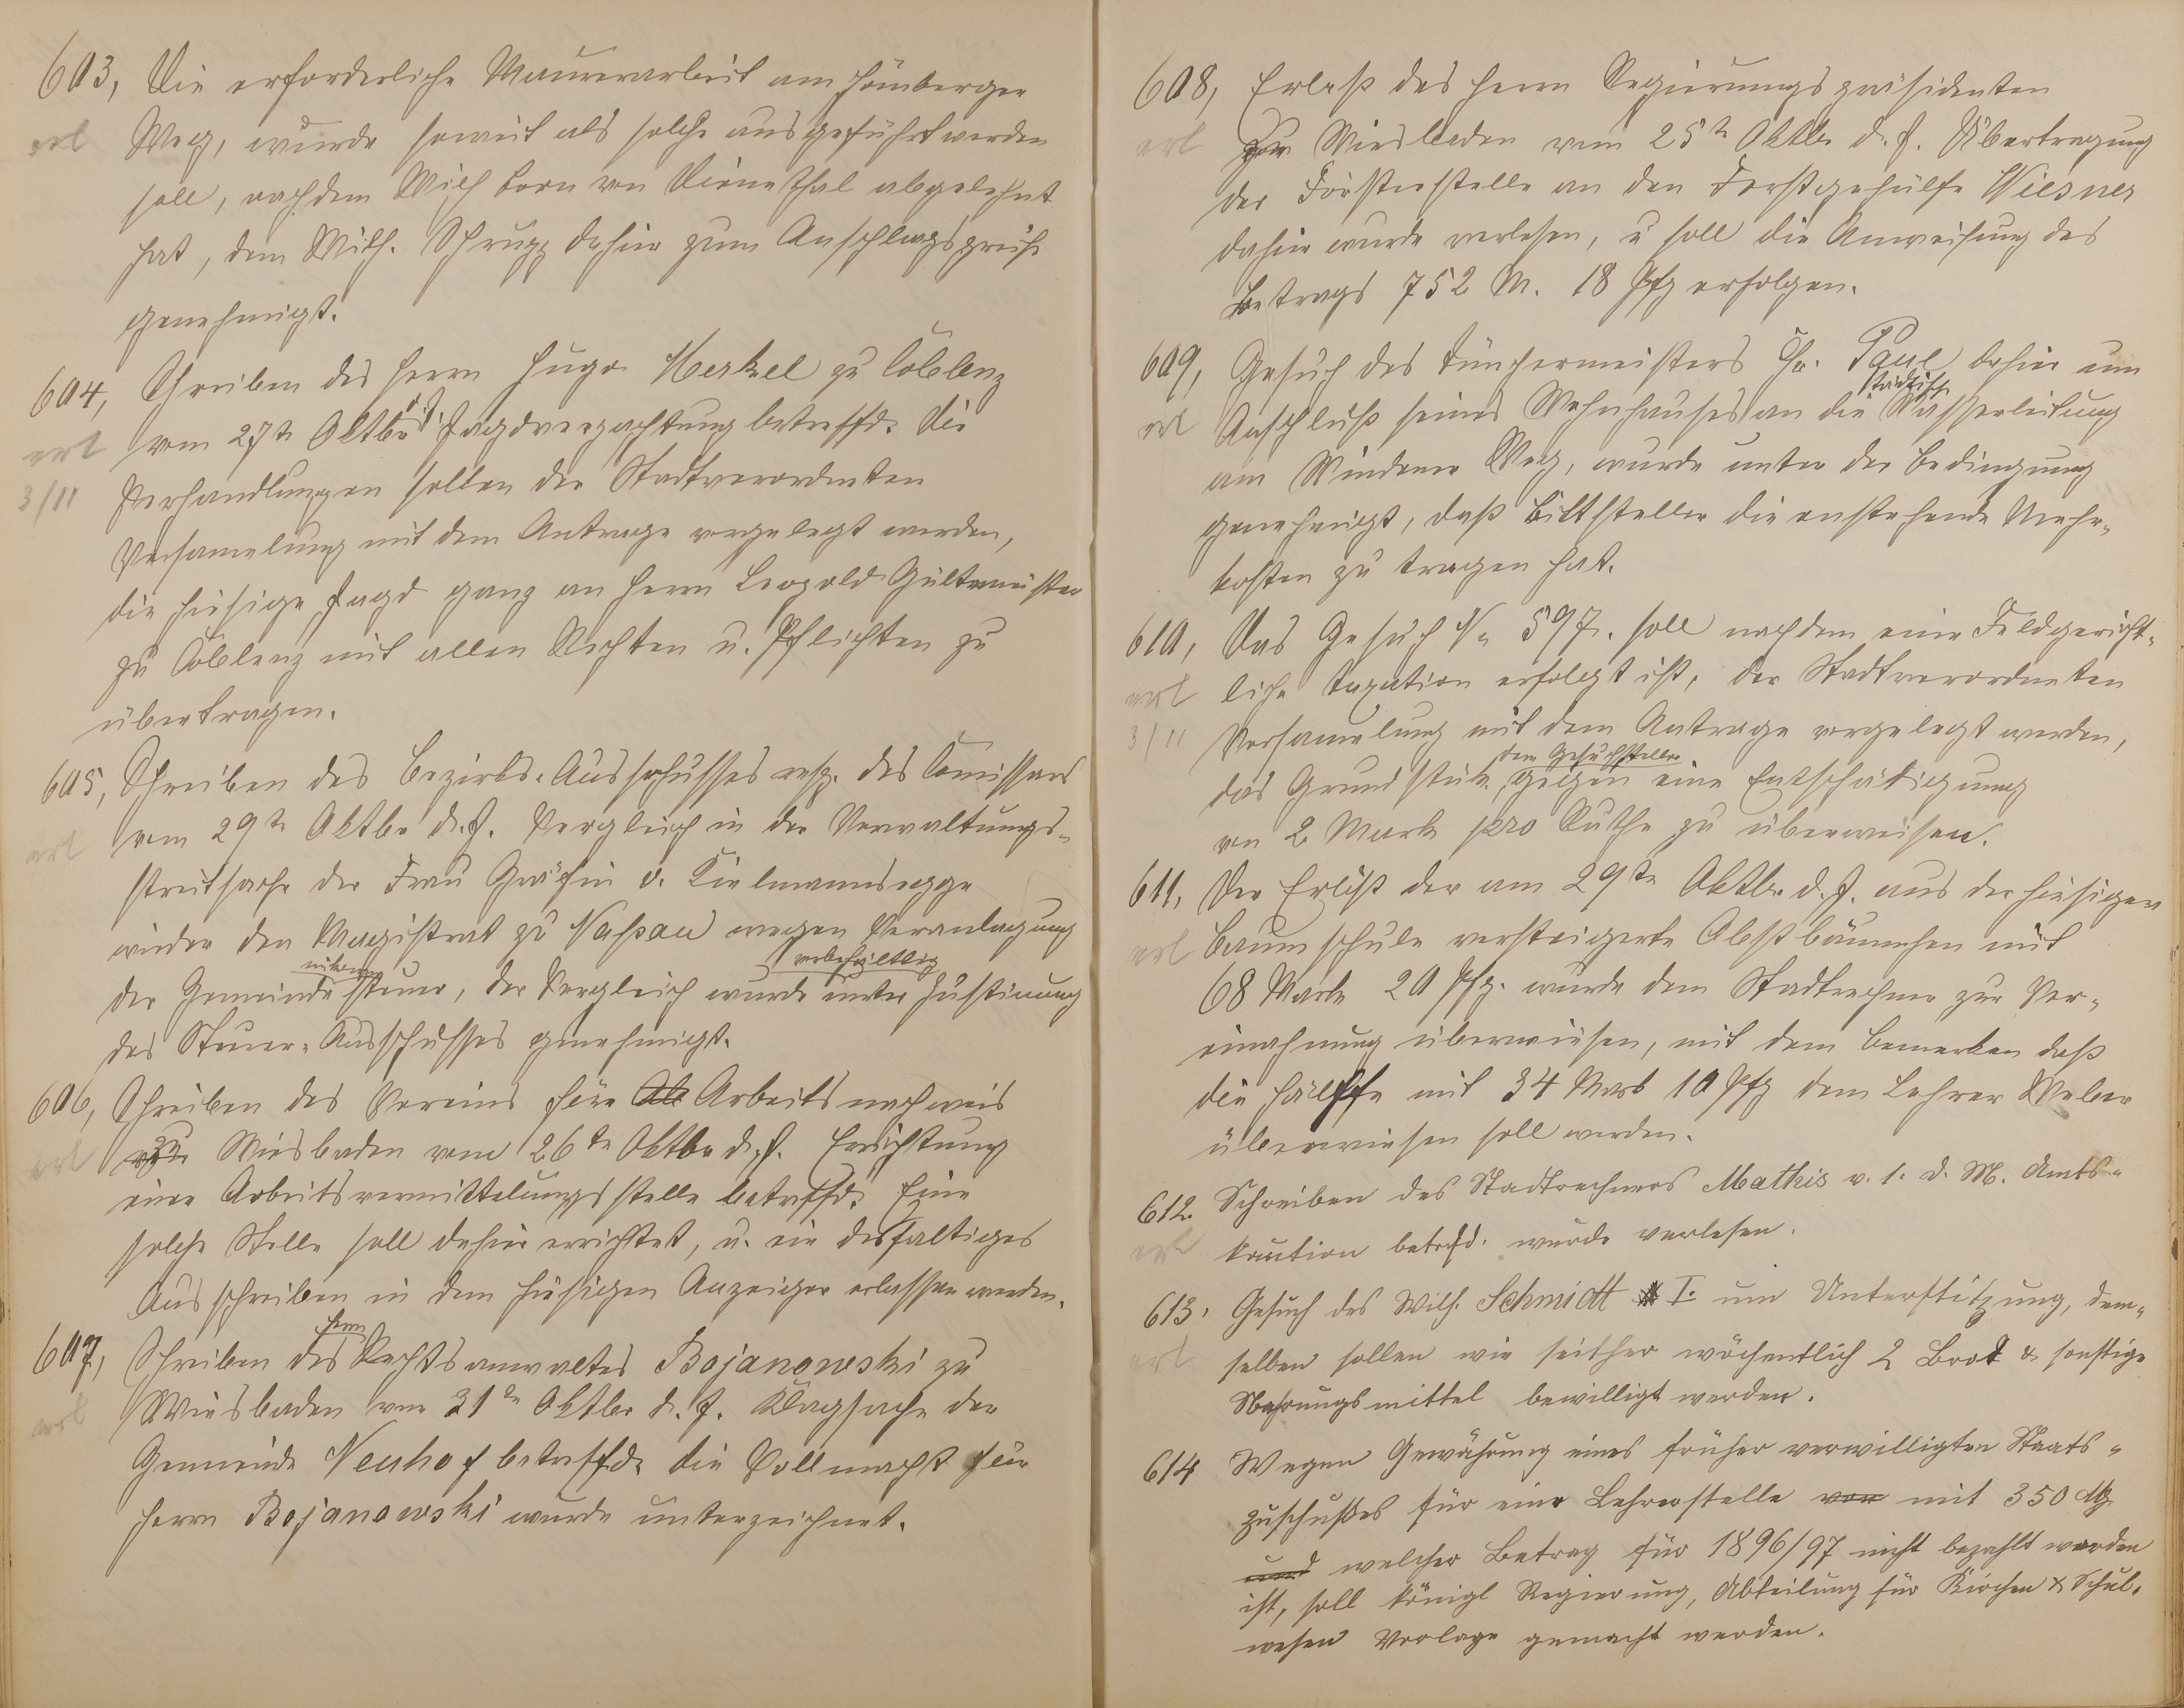 603, Die erforderliche Maurerarbeit am Hömberger
erl Weg, wurde soweit als solche ausgeführt werden
soll, nachdem Wilh Born von Dienethal abgelehnt
hat, dem Wilh. Schrupp dahier zum Anschlagspreise
genehmigt.
604, Schreiben des Herrn Hugo Merkel zu Coblenz
erl vom 27te Oktbr d. J. Jagdverpachtung betreffd. Die
3/11 Verhandlungen sollen der Stadtverordneten
Versamelung mit dem Antrage vorgelegt werden,
die hiesige Jagd ganz an Herrn Leopold Gültenmeister
zu Coblenz mit allen Rechten u. Pflichten zu
übertragen.
605, Schreiben des Bezirks-Ausschusses resp. des Comissars
erl vom 29te Oktbr d. J. Vergleich in der Verwaltungs-
streitsache der Frau Gräfin v. Kielmannsegge
wieder den Magistrat zu Nassau wegen Veranlagung
der Gemeindeeinkomensteuer, der Vergleich wurde vorbehaltlig unter Zustimung
des Steuer-Ausschusses genehmigt.
606, Schreiben des Vereins für Ab Arbeitsnachweis
erl zu Wiesbaden vom 26te Oktbr d. J. Errichtung
einer Arbeitsvermittelungsstelle betreffd. Eine
solche Stelle soll dahier errichtet, u. ein desfaltiges
Ausschreiben in dem hiesigen Anzeiger erlassen werden.
607, Schreiben des Herrn Rechtsanwaltes Bojanowski zu
erl Wiesbaden vom 31te Oktbr d. J. Klagsache der
Gemeinde Neuhof betreffd. die Vollmacht für
Herrn Bojanowski wurde unterzeichnet.
608, Erlaß des Herrn Regierungspräsidenten
erl zu Wiesbaden vom 25te Oktbr d. J. Übertragung
der Försterstelle an den Forstgehülfe Wiesner
dahier wurde verlesen, u soll die Anweisung des
Betrags 752 M. 18 Pfg erfolgen.
609, Gesuch des Tünchermeisters Chr. Paul dahier um
erl Anschluß seines Wohnhauses an die städtische Wasserleitung
am Windener Weg, wurde unter der Bedingung
genehmigt, daß Bittsteller die enstehende Mehr-
kosten zu tragen hat.
610, Das Gesuch No 597. soll nachdem eine Feldgericht-
erl liche Taxation erfolgt ist, der Stadtverordneten
3/11 Versamelung mit dem Antrage vorgelegt werden,
das Grundstük, dem Gesuchsteller gegen eine Entschädigung
von 2 Mark pro Ruthe zu überweisen.
611, Der Erlös der am 29te Oktbr d. J. aus der hiesigen
erl Baumschule versteigerte Obstbäumchen mit
68 Mark 20 Pfg. wurde dem Stadtrechner zur Ver-
einahmung überwiesen, mit dem Bemerken daß
die Hälfte mit 34 Mark 10 Pfg dem Lehrer Weber
überwiesen soll werden.
612. Schreiben des Stadtrechners Mathis v. 1. d. M. Amts-
erl kaution betrfd. wurde verlesen.
613. Gesuch des Wilh. Schmidt I. um Unterstützung, dem-
erl selben sollen wie seither wöchentlich 2 Brot & sonstige
Nahrungsmittel bewilligt werden.
614 Wegen Gewährung eines früher verwilligten Staats-
zuschußes für eine Lehrerstelle von mit 350 M
und welcher Betrag für 1896/97 nicht bezahlt worden
ist, soll königl Regierung, Abteilung für Kirchen & Schul-
wesen Vorlage gemacht werden.